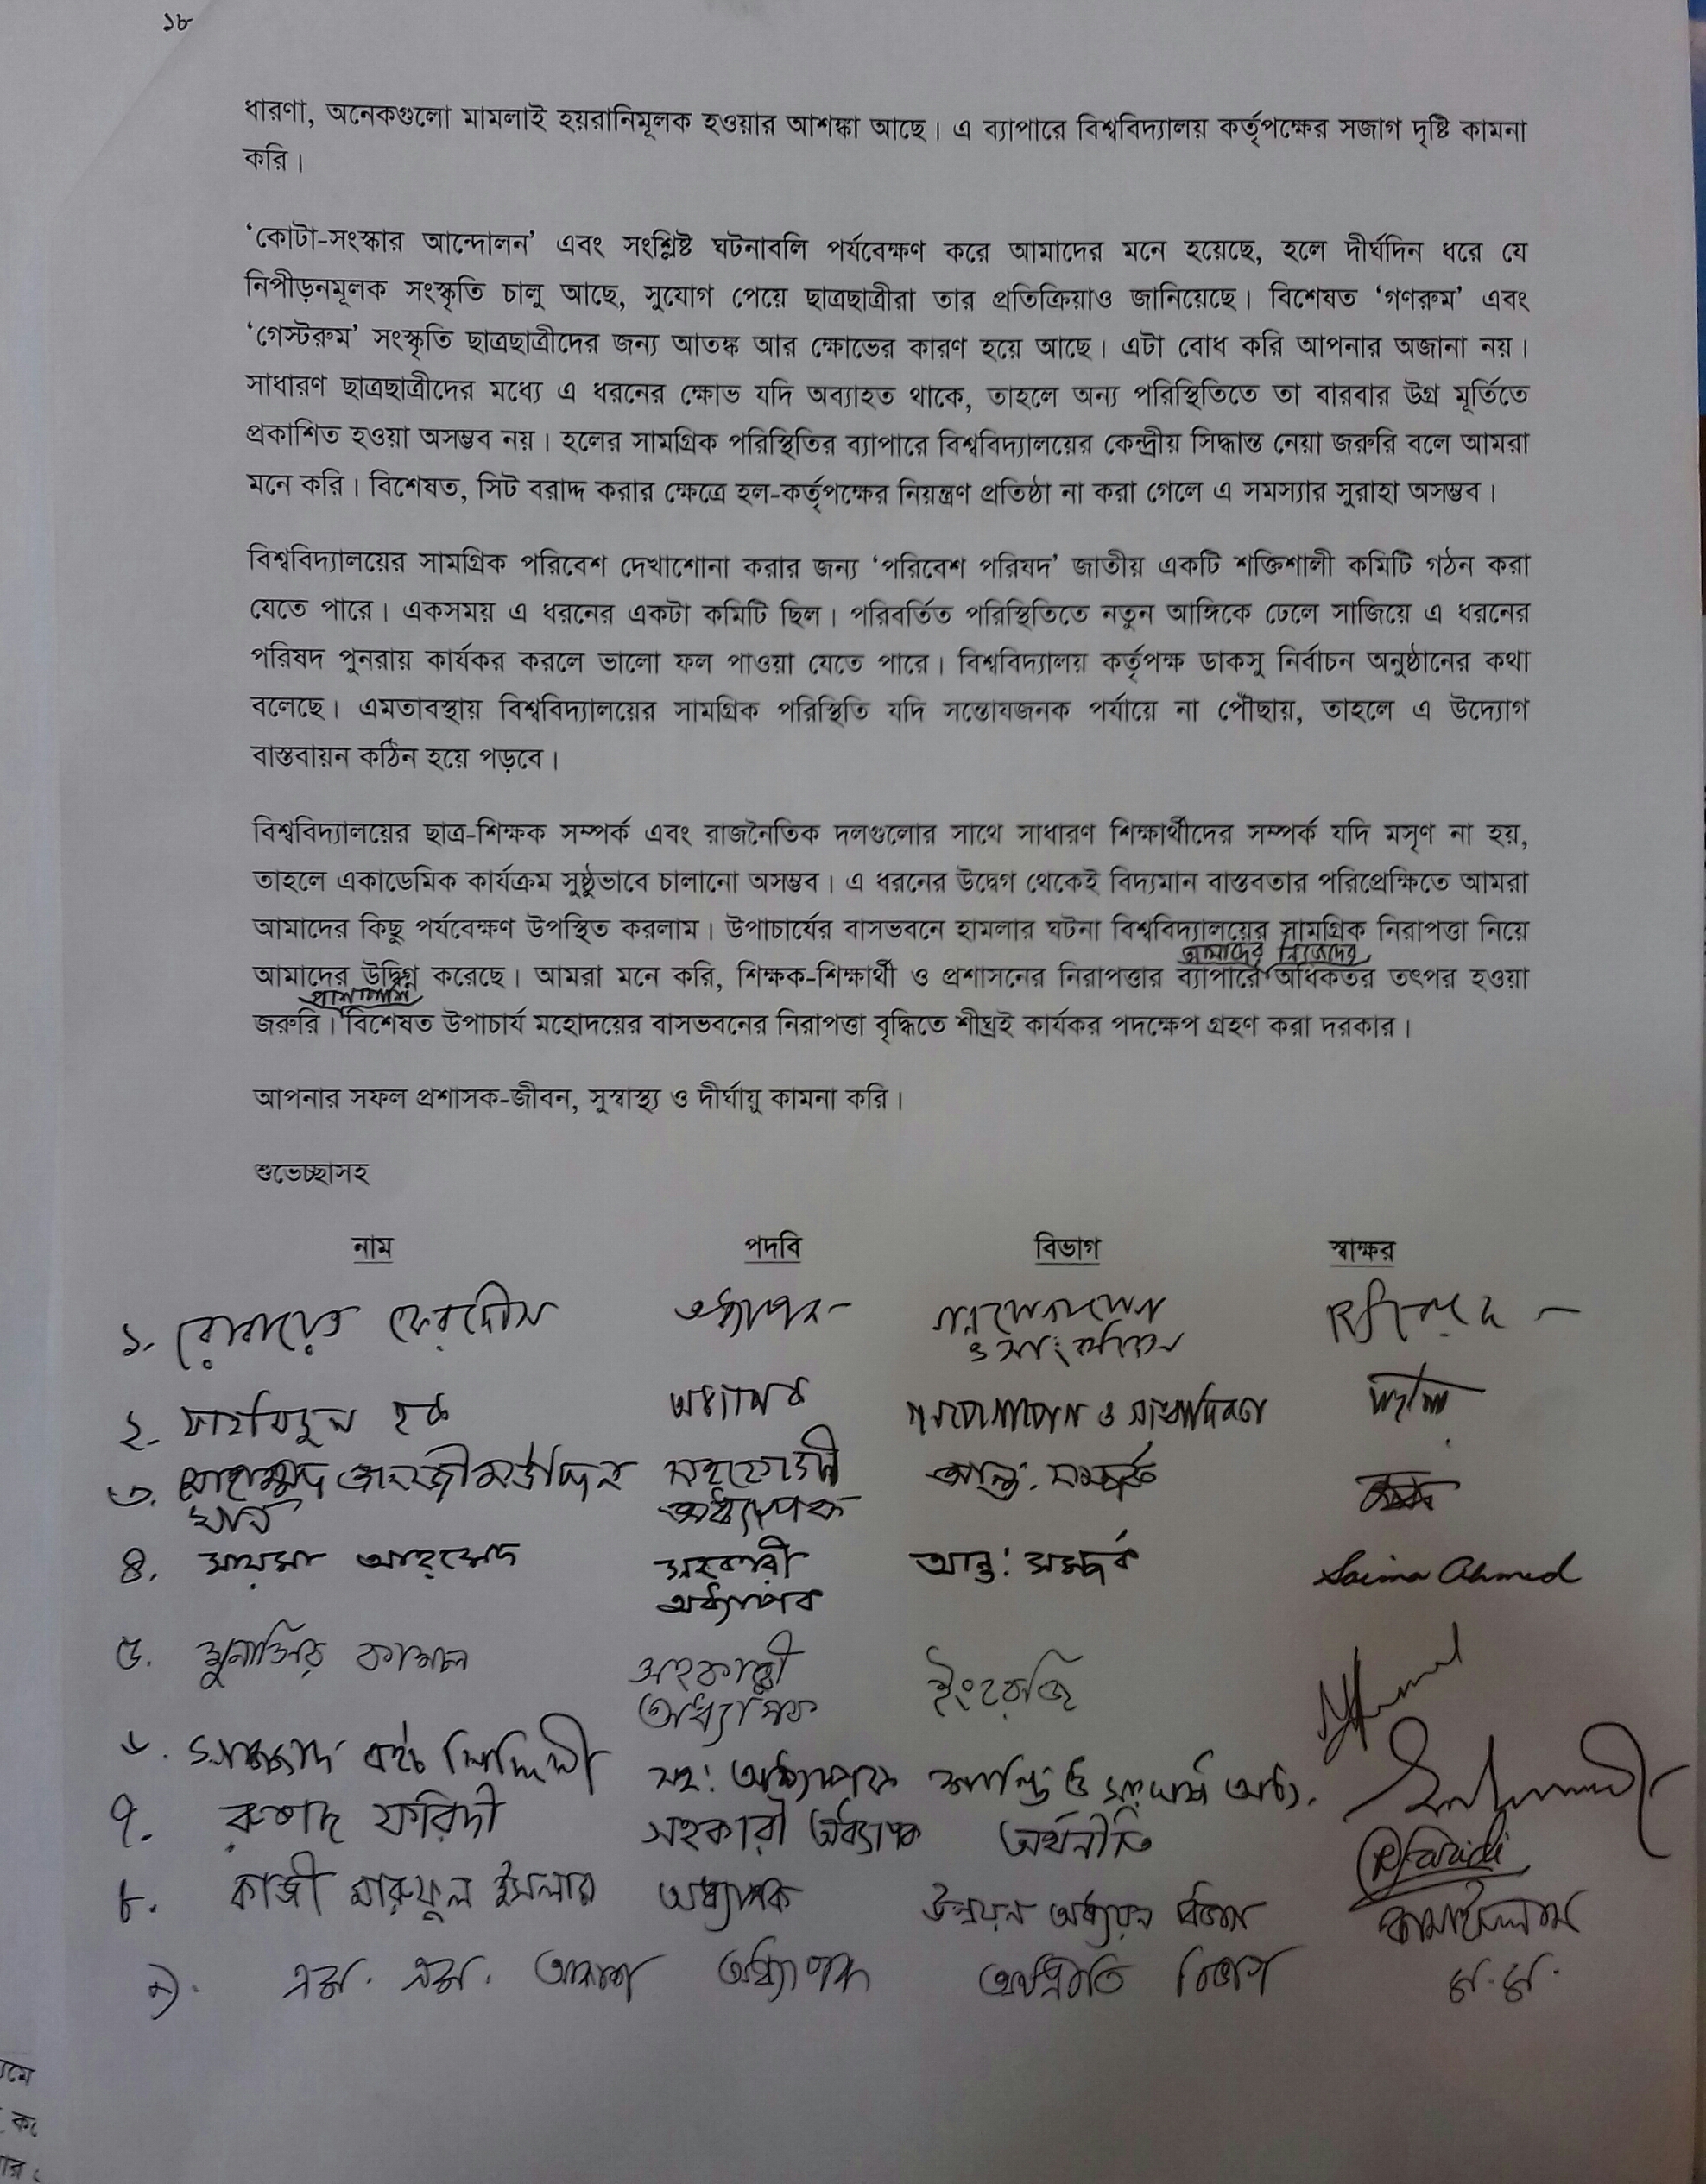 ১৮
ধারণা, অনেকগুলো মামলাই হয়রানিমূলক হওয়ার আশঙ্কা আছে। এ ব্যাপারে বিশ্ববিদ্যালয় কর্তৃপক্ষের সজাগ দৃষ্টি কামনা
করি।
‘কোটা-সংস্কার আন্দোলন’ এবং সংশ্লিষ্ট ঘটনাবলি পর্যবেক্ষণ করে আমাদের মনে হয়েছে, হলে দীর্ঘদিন ধরে যে
নিপীড়নমূলক সংস্কৃতি চালু আছে, সুযোগ পেয়ে ছাত্রছাত্রীরা তার প্রতিক্রিয়াও জানিয়েছে। বিশেষত ‘গণরুম’ এবং
‘গেস্টরুম’ সংস্কৃতি ছাত্রছাত্রীদের জন্য আতঙ্ক আর ক্ষোভের কারণ হয়ে আছে। এটা বোধ করি আপনার অজানা নয়।
সাধারণ ছাত্রছাত্রীদের মধ্যে এ ধরনের ক্ষোভ যদি অব্যাহত থাকে, তাহলে অন্য পরিস্থিতিতে তা বারবার উগ্র মূর্তিতে
প্রকাশিত হওয়া অসম্ভব নয়। হলের সামগ্রিক পরিস্থিতির ব্যাপারে বিশ্ববিদ্যালয়ের কেন্দ্রীয় সিদ্ধান্ত নেয়া জরুরি বলে আমরা
মনে করি। বিশেষত, সিট বরাদ্দ করার ক্ষেত্রে হল-কর্তৃপক্ষের নিয়ন্ত্রণ প্রতিষ্ঠা না করা গেলে এ সমস্যার সুরাহা অসম্ভব।
বিশ্ববিদ্যালয়ের সামগ্রিক পরিবেশ দেখাশোনা করার জন্য ‘পরিবেশ পরিষদ’ জাতীয় একটি শক্তিশালী কমিটি গঠন করা
যেতে পারে। একসময় এ ধরনের একটা কমিটি ছিল। পরিবর্তিত পরিস্থিতিতে নতুন আঙ্গিকে ঢেলে সাজিয়ে এ ধরনের
পরিষদ পুনরায় কার্যকর করলে ভালো ফল পাওয়া যেতে পারে। বিশ্ববিদ্যালয় কর্তৃপক্ষ ডাকসু নির্বাচন অনুষ্ঠানের কথা
বলেছে। এমতাবস্থায় বিশ্ববিদ্যালয়ের সামগ্রিক পরিস্থিতি যদি সন্তোষজনক পর্যায়ে না পৌঁছায়, তাহলে এ উদ্যোগ
বাস্তবায়ন কঠিন হয়ে পড়বে।
বিশ্ববিদ্যালয়ের ছাত্র-শিক্ষক সম্পর্ক এবং রাজনৈতিক দলগুলোর সাথে সাধারণ শিক্ষার্থীদের সম্পর্ক যদি মসৃণ না হয়,
তাহলে একাডেমিক কার্যক্রম সুষ্ঠুভাবে চালানো অসম্ভব। এ ধরনের উদ্বেগ থেকেই বিদ্যমান বাস্তবতার পরিপ্রেক্ষিতে আমরা
আমাদের কিছু পর্যবেক্ষণ উপস্থিত করলাম। উপাচার্যের বাসভবনে হামলার ঘটনা বিশ্ববিদ্যালয়ের সামগ্রিক নিরাপত্তা নিয়ে
আমাদের নিজেদের
আমাদের উদ্বিগ্ন করেছে। আমরা মনে করি, শিক্ষক-শিক্ষার্থী ও প্রশাসনের নিরাপত্তার ব্যাপারে অধিকতর তৎপর হওয়া
পাশাপাশি
জরুরি। বিশেষত উপাচার্য মহোদয়ের বাসভবনের নিরাপত্তা বৃদ্ধিতে শীঘ্রই কার্যকর পদক্ষেপ গ্রহণ করা দরকার।
আপনার সফল প্রশাসক-জীবন, সুস্বাস্থ্য ও দীর্ঘায়ু কামনা করি।
শুভেচ্ছাসহ
নাম পদবি বিভাগ স্বাক্ষর
১. রোবায়েত ফেরদৌস অধ্যাপক গণযোগাযোগ
ও সাংবাদিকতা
২. ফাহমিদুল হক অধ্যাপক গণযোগাযোগ ও সাংবাদিকতা
৩. মোহাম্মদ তানজীমউদ্দিন সহযোগী আন্ত: সম্পর্ক
খান অধ্যাপক
৪. সায়মা আহমেদ সহকারী আন্ত: সম্পর্ক Saima Ahmed
অধ্যাপক
৫. মুনাসির কামাল সহকারী ইংরেজি
অধ্যাপক
৬. সাজ্জাদ সিদ্দিকী সহ: অধ্যাপক শান্তি ও সংঘর্ষ অধ্য.
৭. রুশাদ ফরিদী সহকারী অধ্যাপক অর্থনীতি RFaridi
৮. কাজী মারুফুল ইসলাম অধ্যাপক উন্নয়ন অধ্যয়ন বিভাগ কামাইসলাম
৯. এম. এম. আকাশ অধ্যাপক অর্থনীতি বিভাগ